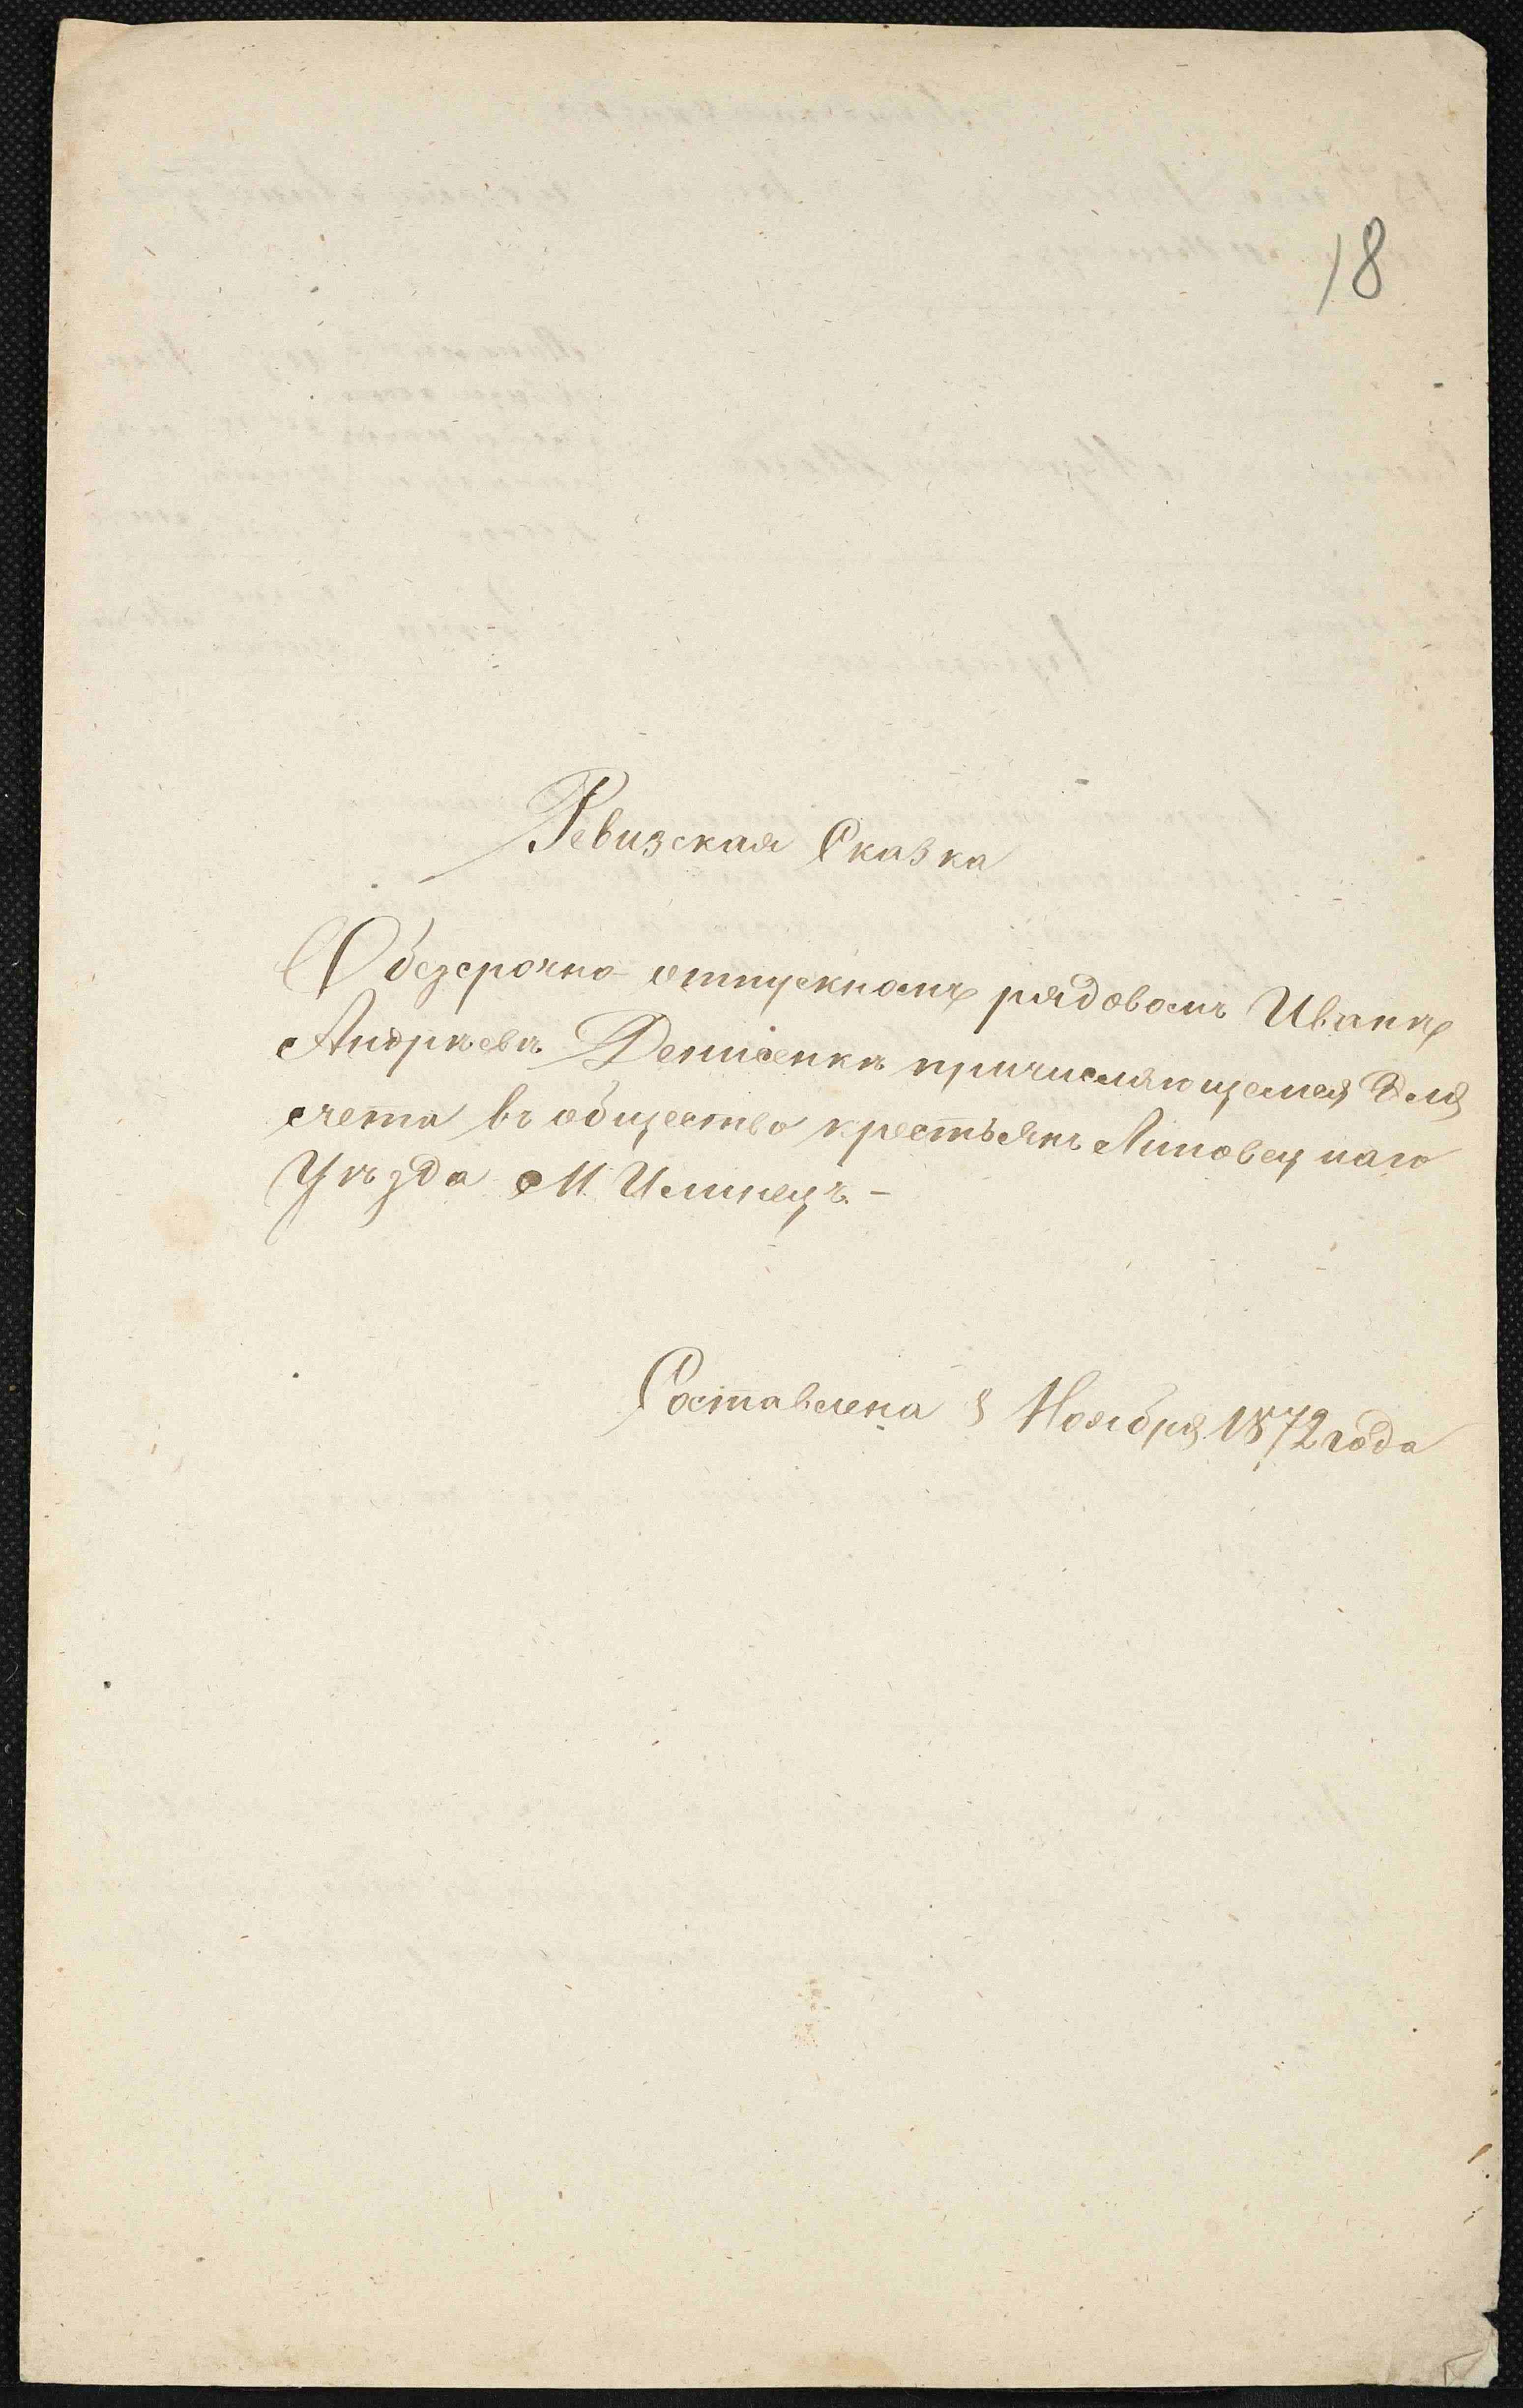 18
Ревизская Сказка
О безсрочно отпускномъ рядовомъ Иванѣ
Андрѣевѣ Денисенкѣ причисляющемся для
счета въ общество крестьянъ Липовецкаго
Уѣзда М. Илинецъ. -
Составлена 8 Ноября 1872 года